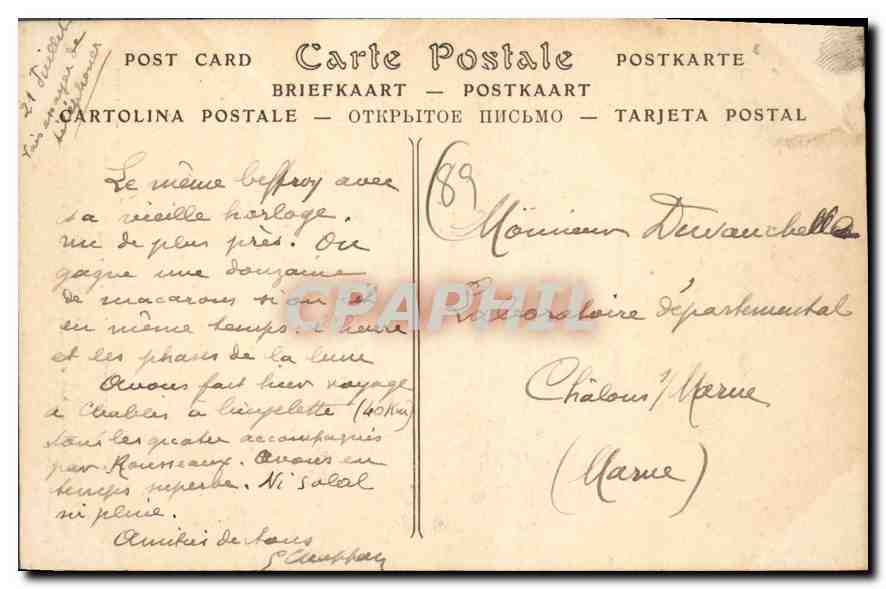 21 Juillet
Vais essayer de
téléphoner
POST CARD Carte Postale POSTKARTE
BRIEFKAART — POSTKAART
CARTOLINA POSTALE — ОТКРЫТОЕ ПИСЬМО — TARJETA POSTAL
Le même beffroy avec
sa vieille horloge.
vu de plus près. On
gagne une douzaine
de macarons si on lit
en même temps l'heure
et les phases de la lune
Avons fait hier voyage
à Chablis à bicyclette (40 Km)
tous les quatre accompagnés
par Rousseaux. Avons eu
temps superbe. Ni soleil
ni pluie.
Amitiés de tous
(89
Monsieur
Laboratoire départemental
Châlons s/ Marne
(Marne)
CPAPHIL